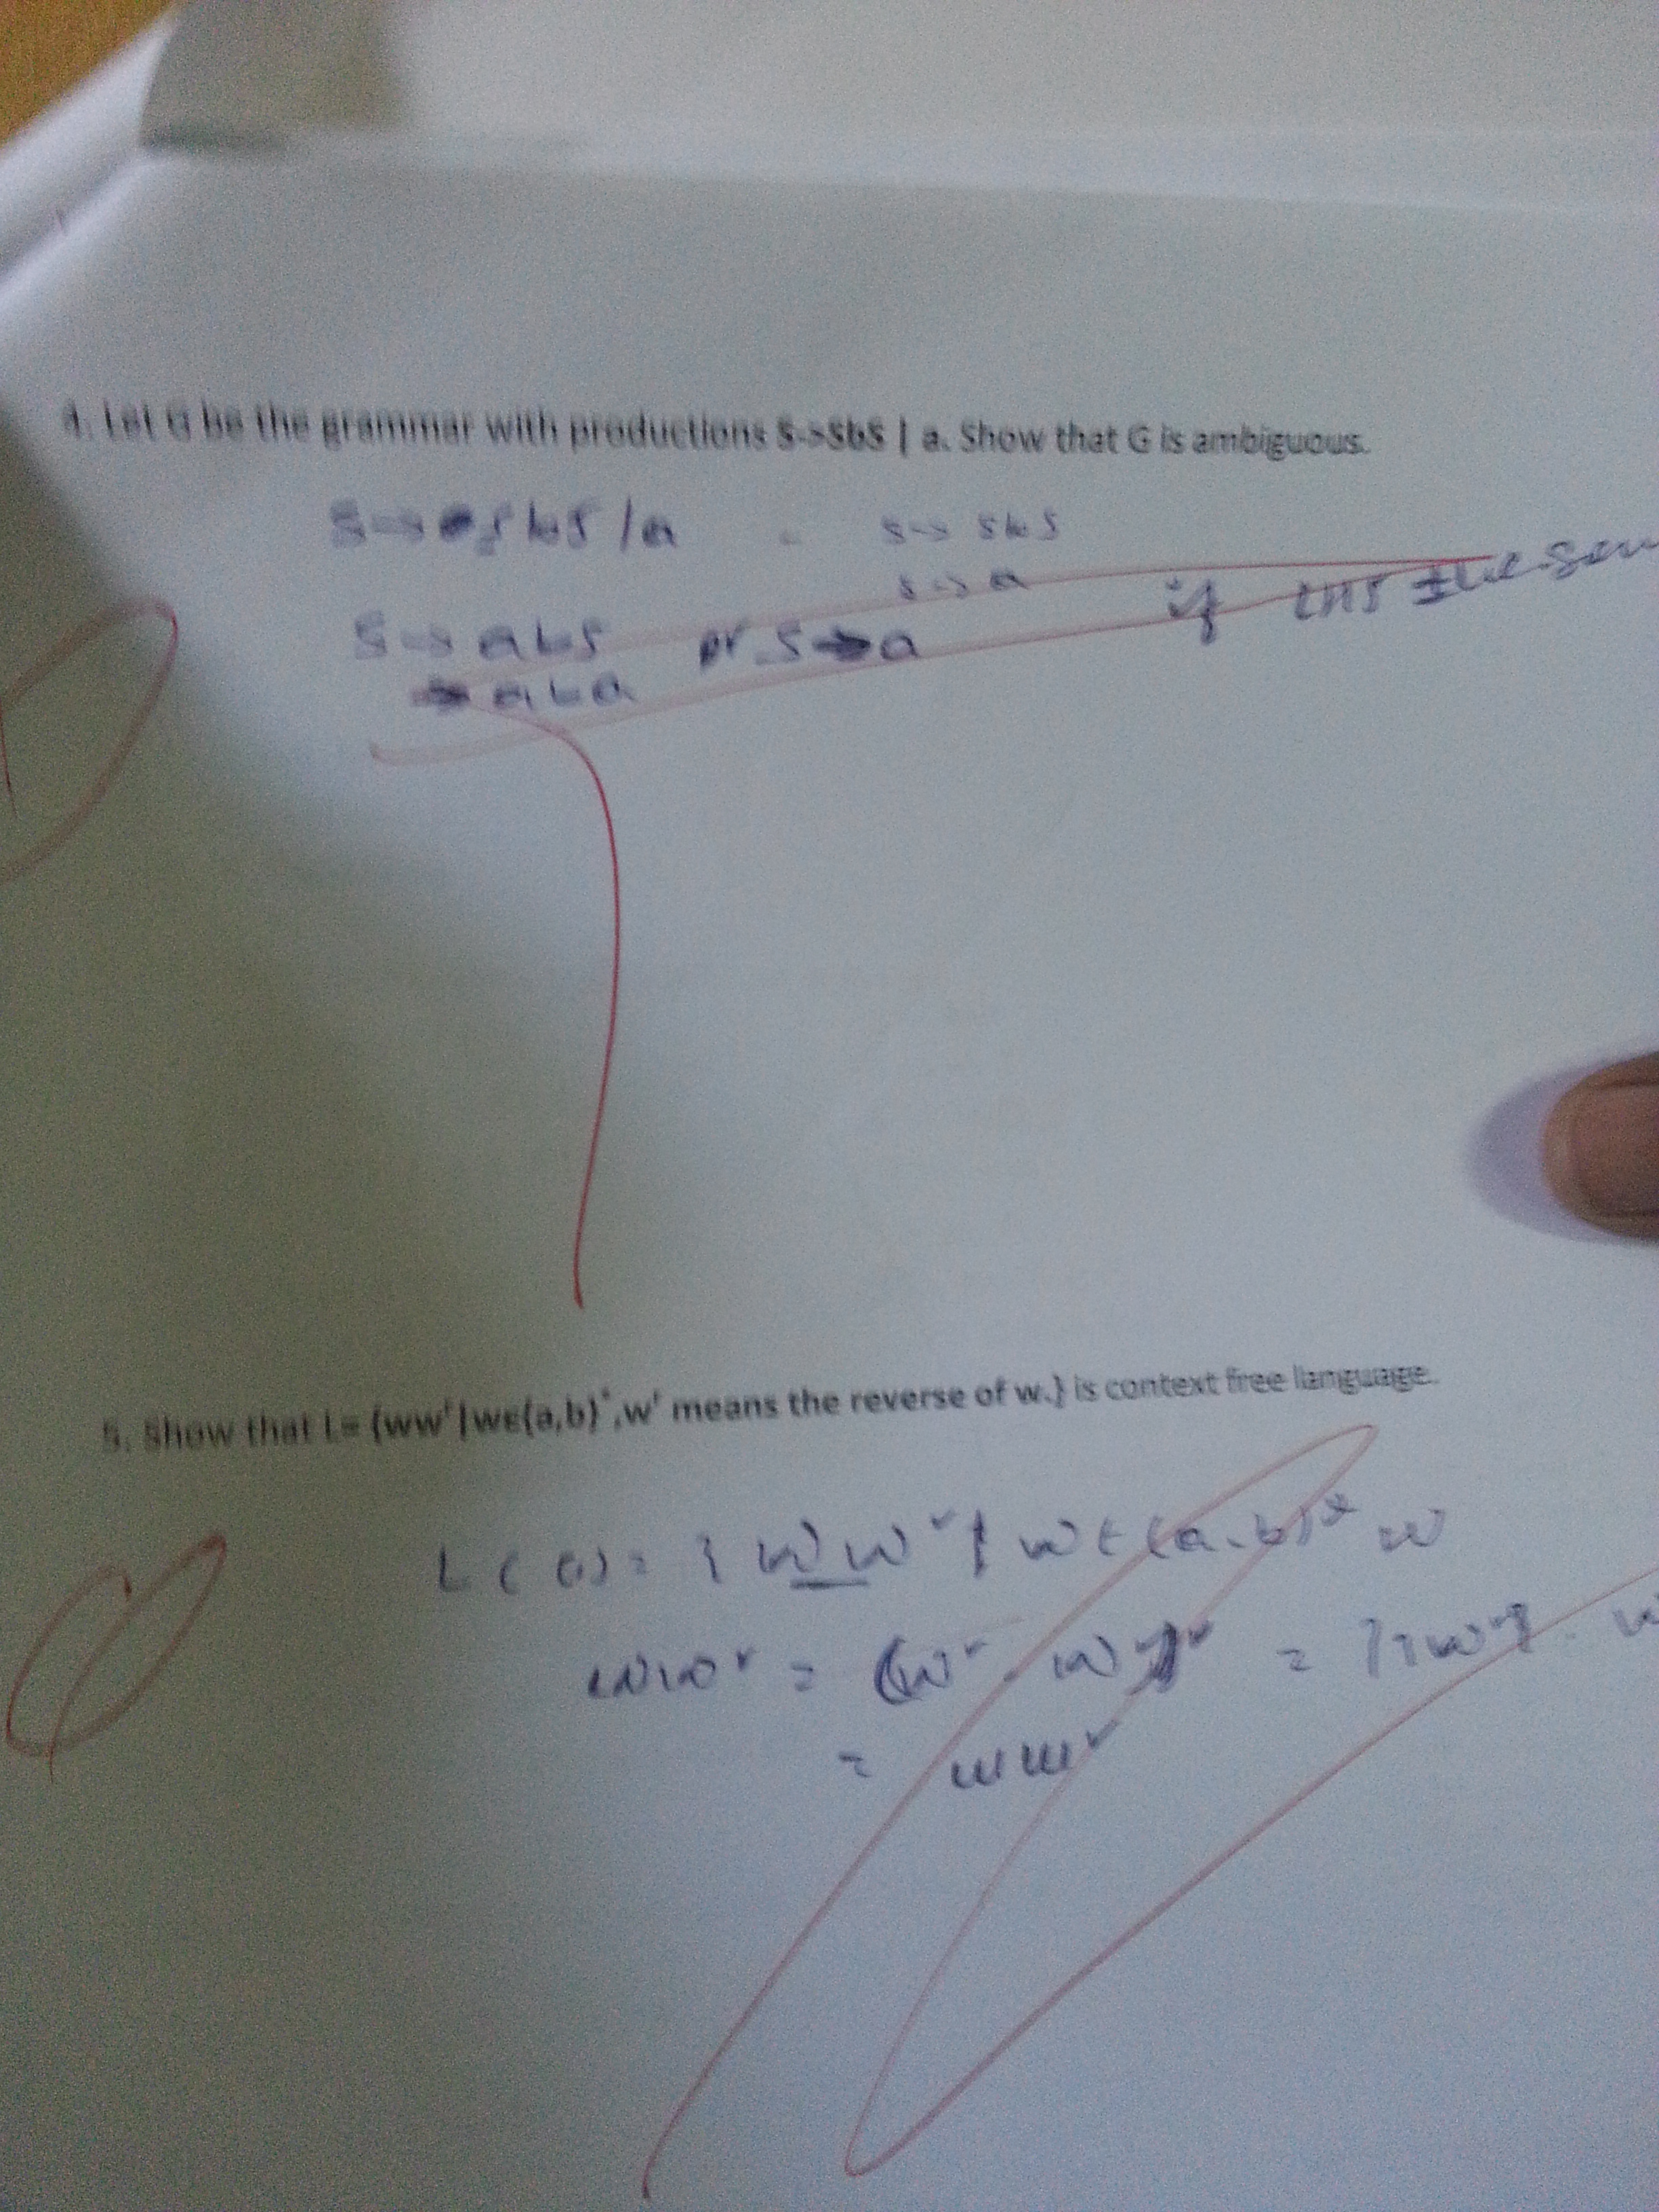 4. Let G be the grammar with productions S->SbS | a. Show that G is ambiguous.
S → SbS /a
S → SbS
S → a
if LHS
S → abS or S → a
→ aba
5. Show that L= {wwʳ|wε{a,b}*,wʳ means the reverse of w.} is context free language.
L(G) = { w wʳ | w ε (a,b)* w
wwʳ = (wʳ w)ʳ =
= wwʳ